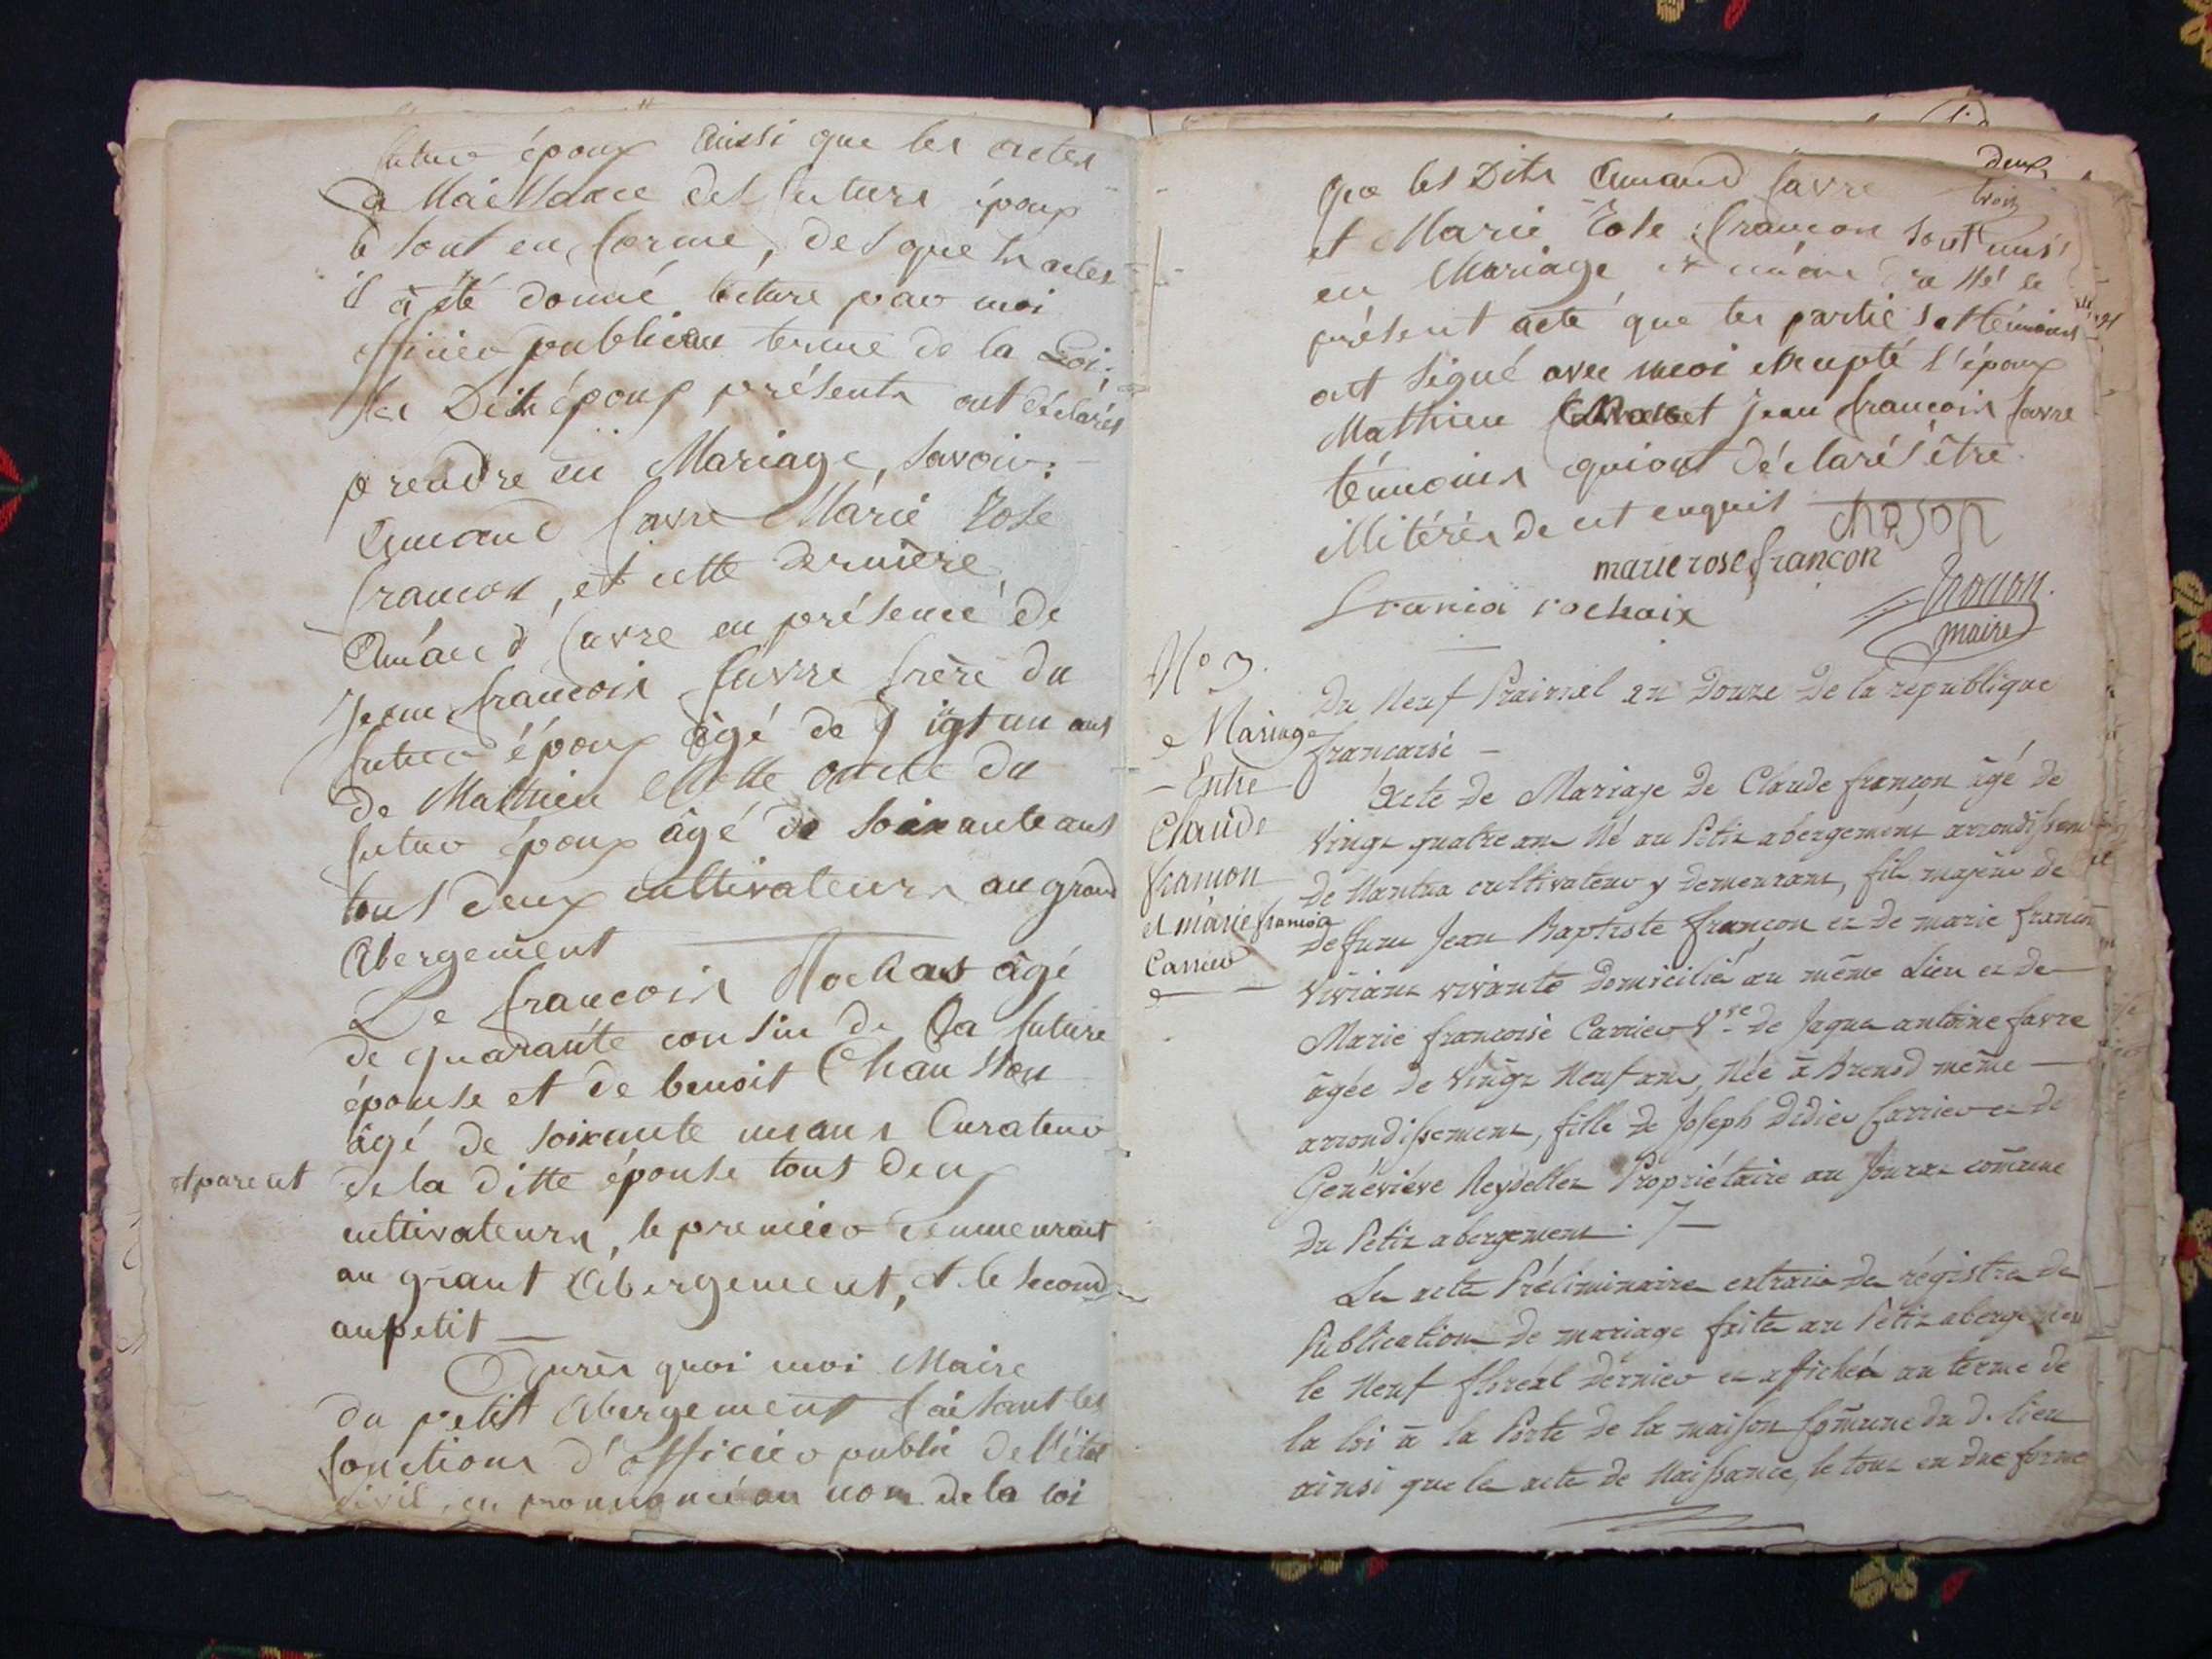 futur époux Ainsi que les actes
de Naissance des futurs époux
le tout en forme, desquels actes
il à été donné lecture par moi
officier public au terme de la Loi.
les Dits époux présents ont déclarés
prendre en Mariage, Savoir:
Amand favre Marie Rose
françon, et cette dernière,
Amand favre en présence de
Jean françois favre frère du
futur époux âgé de vigt un ans
de Mathieu oncle du
futur époux âgé de soixante ans
tous deux cultivateurs au grand
Abergement
De françois Rochas âgé
de quarante cousin de la future
épouse et de benoit Chausson
âgé de soixante un ans Curateur
et parent
de la ditte épouse tous deux
cultivateurs, le premier demeurant
au grant Abergement, et le second
au petit
Après quoi moi Maire
du petit Abergement faisant les
fonctions d'officier public de l'état
civil, en prononcé au nom de la loi
deux
trois
Que les Dits Amand favre
et Marie Rose françon sont unis
en Mariage et
présent acte que les partie et témoins
ont signé avec moi excepté l'époux
Mathieu et Jean françois favre
témoins qui ont déclarés être
illitérés de cet enquis
chason
marie rose françon
francoi rochaix
françon
maire
No 3.
Mariage
Entre
Claude
françon
et marie françoise
Carrier
Du Neuf Prairial an Douze De la république
francaise
Acte De Mariage De Claude françon âgé de
Vingt quatre ans Né au Petit abergement arrondissement
de Nantua cultivateur y demeurant, fils majeur de
Defunt Jean Baptiste françon et de marie francoise
Viviant vivante domiciliée au même Lieu et de
Marie francoise Carrier Vve de Jaques antoine favre
âgée de Vingt Neuf ans, Née à Brenod même
arrondissement, fille de Joseph Didier Carrier et de
Généviève Reydellet Propriétaire au Jourat comune
du Petit abergement.
Les actes Préliminaires extraits des régistres de
Publications de mariage faites au Petit abergement
le Neuf floréal dérnier et affichés au terme de
la loi à la Porte de la maison comune du d. lieu
ainsi que les actes de Naissance, le tout en due forme